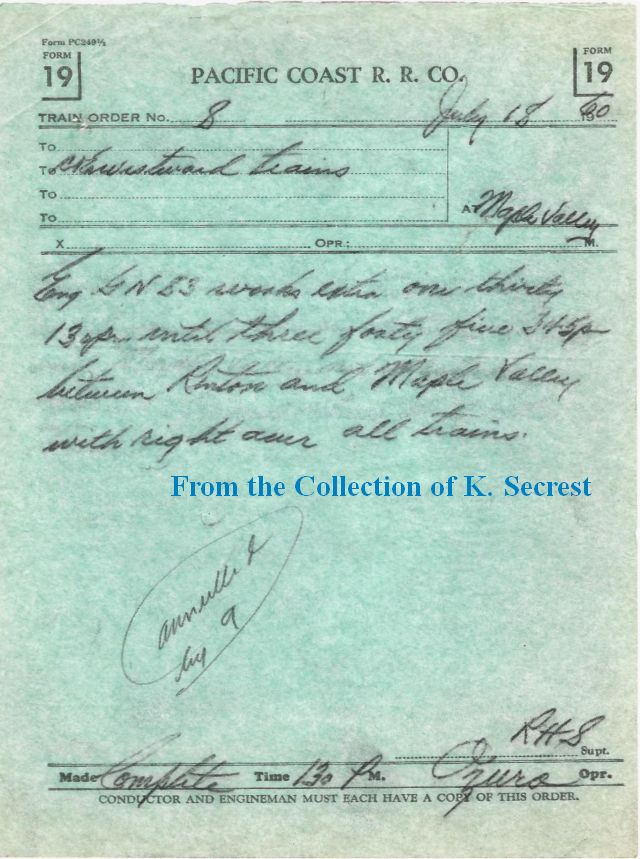 Form PC249½
FORM 19
FORM 19
PACIFIC COAST R. R. CO.
TRAIN ORDER No. 8 July 18 1960
To
To westward trains
To
To
AT Maple Valley
X OPR: M.
Eng GN 83 works extra one thirty
130pm until three forty five 345p
between Renton and Maple Valley
with right over all trains.
From the Collection of K. Secrest
annulled
by 9
RHS Supt.
Made Complete Time 130 P M. Opr.
CONDUCTOR AND ENGINEMAN MUST EACH HAVE A COPY OF THIS ORDER.